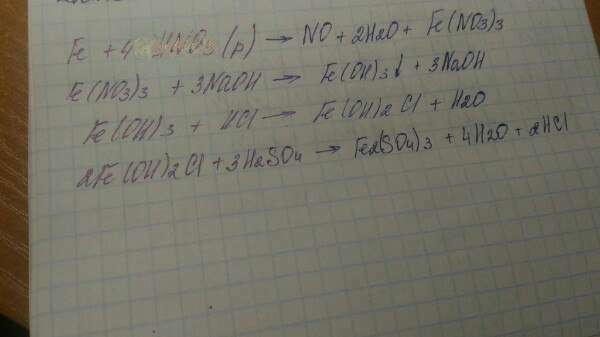 Fe + 4HNO3(р) → NO + 2H2O + Fe(NO3)3
Fe(NO3)3 + 3NaOH → Fe(OH)3↓ + 3NaOH
Fe(OH)3 + HCl → Fe(OH)2Cl + H2O
2Fe(OH)2Cl + 3H2SO4 → Fe2(SO4)3 + 4H2O + 2HCl